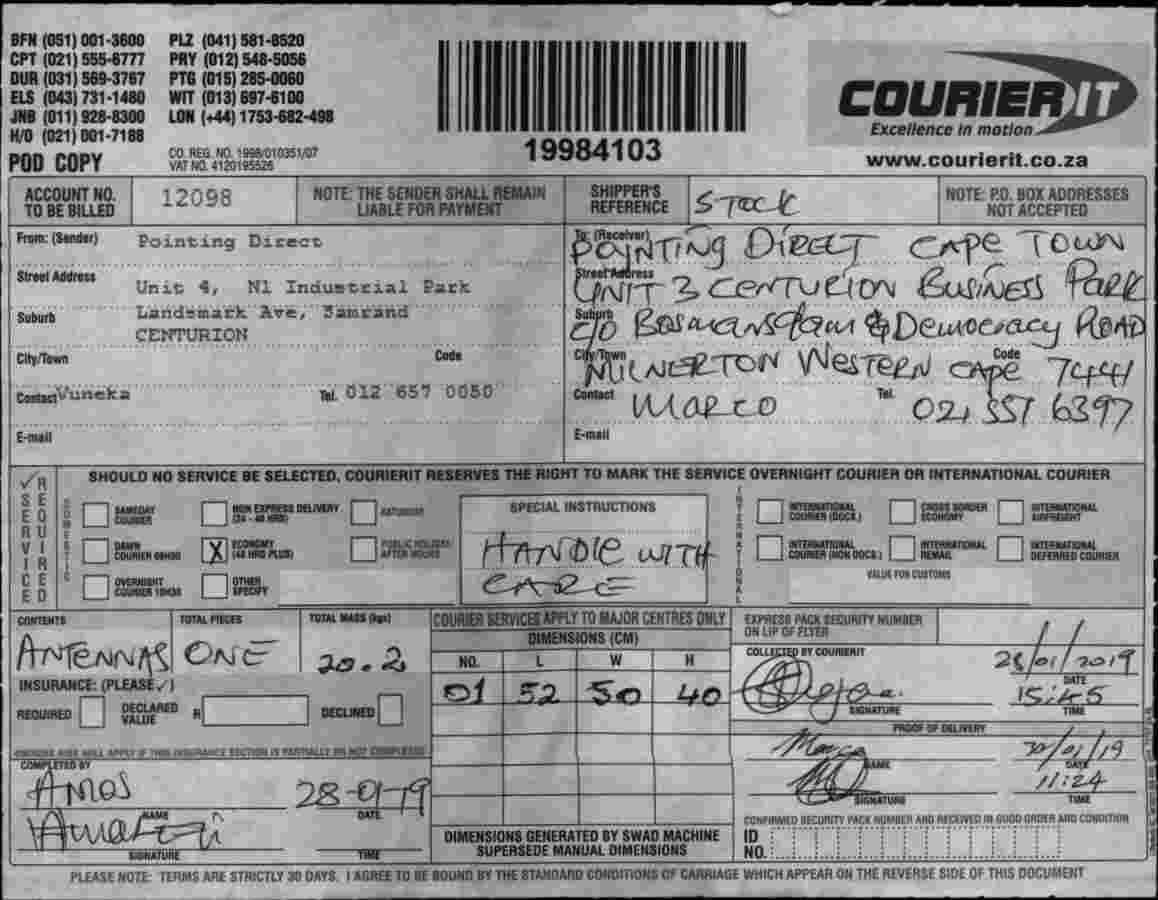 BFN (051) 001-3600 PLZ (041) 581-8520
CPT (021) 555-6777 PRY (012) 548-5056
DUR (031) 569-3767 PTG (015) 285-0060
ELS (043) 731-1480 WIT (013) 697-6100
JNB (011) 928-8300 LON (+44) 1753-682-498
H/O (021) 001-7188
POD COPY
CO. REG. NO. 1998/010351/07
VAT NO. 4120195526
19984103
COURIER IT
Excellence in motion
www.courierit.co.za
ACCOUNT NO. TO BE BILLED 12098
NOTE: THE SENDER SHALL REMAIN LIABLE FOR PAYMENT
SHIPPER'S REFERENCE STOCK
NOTE: P.O. BOX ADDRESSES NOT ACCEPTED
From: (Sender) Pointing Direct
Street Address Unit 4, N1 Industrial Park
Suburb Landsmark Ave, Samrand
CENTURION
City/Town Code
Contact Vuneka Tel. 012 657 0050
E-mail
To: (Receiver) POINTING DIRECT CAPE TOWN
Street Address UNIT 3 CENTURION BUSINESS PARK
Suburb c/o Bosmansdam & Democracy ROAD
City/Town MILNERTON WESTERN CAPE Code 7441
Contact MARCO Tel. 021 551 6397
E-mail
SERVICE REQUIRED
SHOULD NO SERVICE BE SELECTED, COURIERIT RESERVES THE RIGHT TO MARK THE SERVICE OVERNIGHT COURIER OR INTERNATIONAL COURIER
DOMESTIC
SAMEDAY COURIER
NON EXPRESS DELIVERY (24 - 48 HRS)
SATURDAY
DAWN COURIER 08H30
X ECONOMY (48 HRS PLUS)
PUBLIC HOLIDAY AFTER HOURS
OVERNIGHT COURIER 10H30
OTHER SPECIFY
SPECIAL INSTRUCTIONS
HANDLE WITH
CARE
INTERNATIONAL
INTERNATIONAL COURIER (DOCS.)
CROSS BORDER ECONOMY
INTERNATIONAL AIRFREIGHT
INTERNATIONAL COURIER (NON DOCS.)
INTERNATIONAL REMAIL
INTERNATIONAL DEFERRED COURIER
VALUE FOR CUSTOMS
CONTENTS ANTENNAS
TOTAL PIECES ONE
TOTAL MASS (kgs) 20.2
INSURANCE: (PLEASE ✓)
REQUIRED
DECLARED VALUE R
DECLINED
OWNERS RISK WILL APPLY IF THIS INSURANCE SECTION IS PARTIALLY OR NOT COMPLETED
COMPLETED BY
AMOS 28-01-19
NAME DATE
SIGNATURE TIME
COURIER SERVICES APPLY TO MAJOR CENTRES ONLY
DIMENSIONS (CM)
NO. L W H
01 52 50 40
DIMENSIONS GENERATED BY SWAD MACHINE SUPERSEDE MANUAL DIMENSIONS
EXPRESS PACK SECURITY NUMBER ON LIP OF FLYER
COLLECTED BY COURIERIT
28/01/2019
DATE
15:45
SIGNATURE TIME
PROOF OF DELIVERY
Marco 30/01/19
NAME DATE
11:24
SIGNATURE TIME
CONFIRMED SECURITY PACK NUMBER AND RECEIVED IN GOOD ORDER AND CONDITION
ID NO.
PLEASE NOTE: TERMS ARE STRICTLY 30 DAYS. I AGREE TO BE BOUND BY THE STANDARD CONDITIONS OF CARRIAGE WHICH APPEAR ON THE REVERSE SIDE OF THIS DOCUMENT